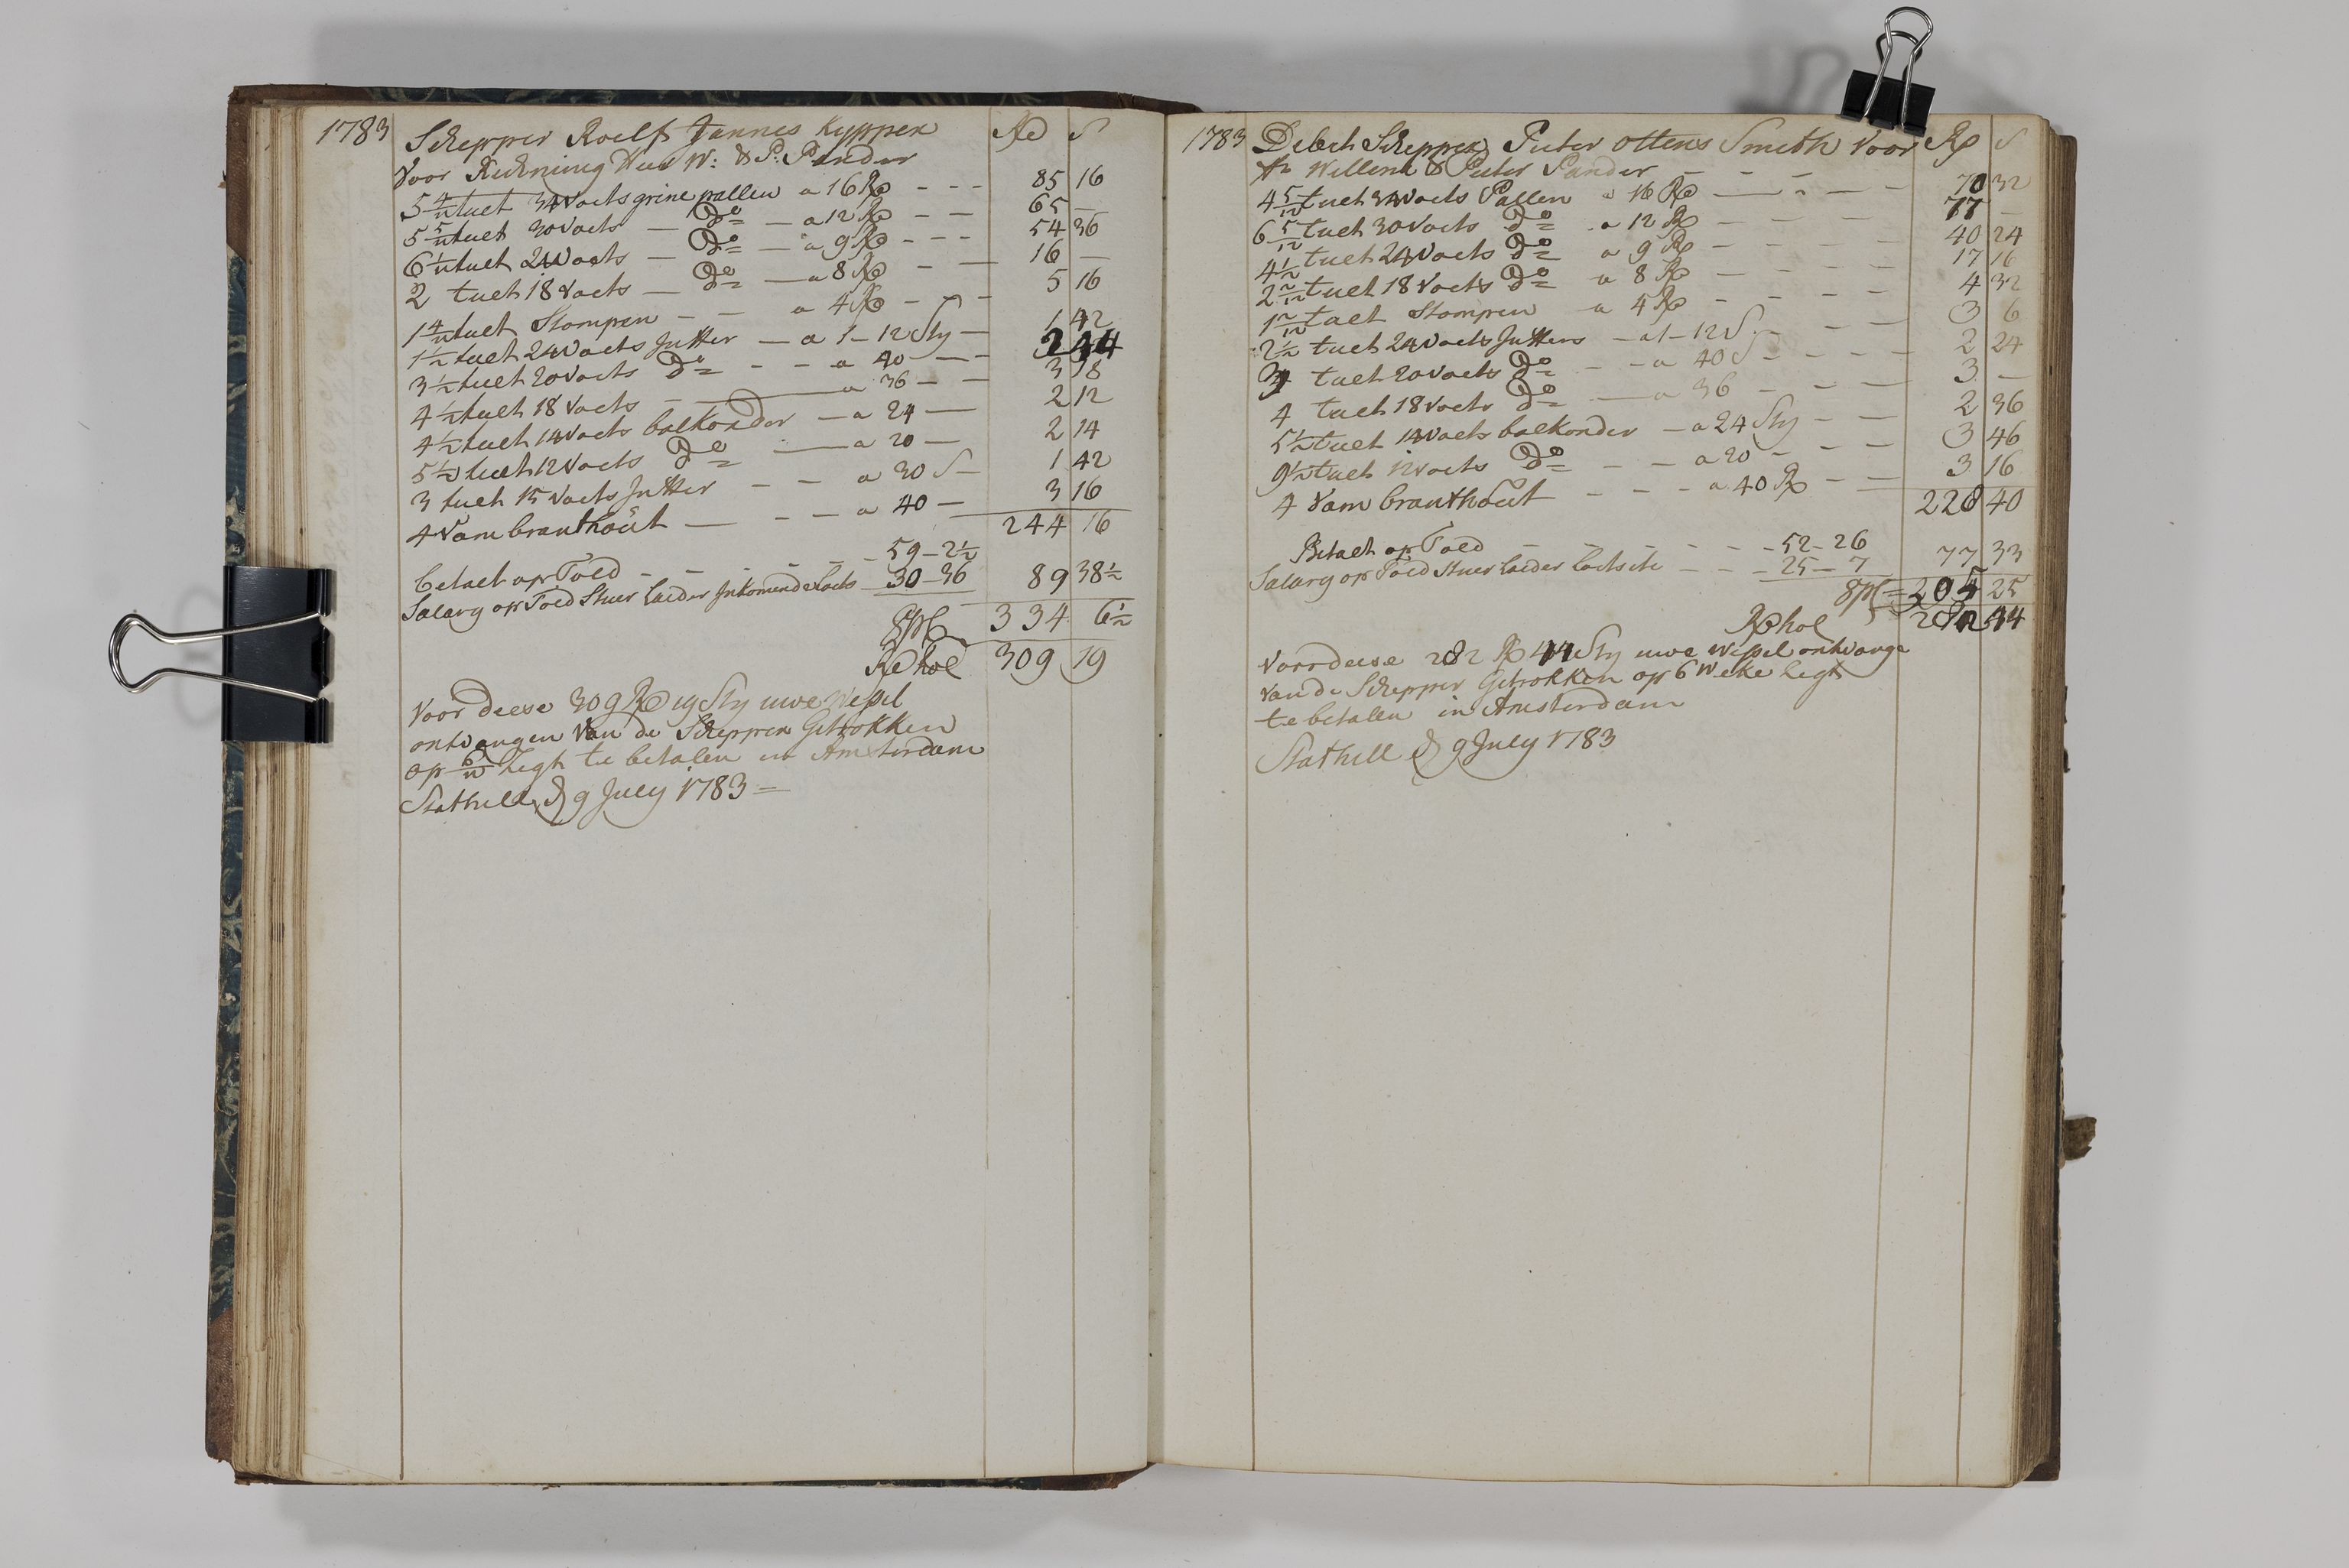 1783 Schepper Roelf Jannes Kypper Rd S
Voor Rickning Heer W: & P: Pander
5 4/12 tuelt 34 Voets grine pallen a 16 Rd - - - 85 16
5 5/12 tuelt 30 Voets — Do — a 12 Rd - — 65 —
6 1/12 tuelt 24 Voets — Do — a 9 Rd - - - 54 36
2 tuelt 18 Voets — Do — a 8 Rd - — 16 —
1 4/12 tuelt Stompen — — a 4 Rd - - - 5 16
1 1/2 tuelt 24 Voets Jutter — a 1 - 12 Sty — 1 42
3 1/2 tuelt 20 Voets Do - - a 40 — 2 44
4 1/2 tuelt 18 Voets — a 36 — 3 18
4 1/2 tuelt 14 Voets balkonder — a 24 — 2 12
5 1/2 tuelt 12 Voets Do — a 20 — 2 14
3 tuelt 15 Voets Jutter - - a 30 S — 1 42
4 Vam branthout — - - a 40 — 3 16
244 16
betaelt op Told - - - - 59 - 2 1/2
Salary op Told Stuer Laeder Inkomende Loets 30 - 36 89 38 1/2
334 6 1/2
Rd hol 309 19
Voor deese 309 Rd 19 Sty uwe Wessel
ontvangen Van de Schepper Getrokken
op 6/w Segt te betalen in Amsterdam
Stathell d 9 July 1783 =
1783 Debet Schepper Pieter Ottens Smith Voor Rd S
Hr Willem & Pieter Pander
4 5/12 tuelt 34 Voets Pallen a 16 Rd — - — 70 32
6 5/12 tuelt 30 Voets Do a 12 Rd - - - 77 —
4 1/2 tuelt 24 Voets Do a 9 Rd - - - 40 24
2 2/12 tuelt 18 Voets Do a 8 Rd - - - 17 16
1 2/12 tuelt Stompen a 4 Rd - - - 4 32
2 1/2 tuelt 24 Voets Jutters — a 1 - 12 S - - - 3 6
3 tuelt 20 Voets Do - - a 40 S - - - 2 24
4 tuelt 18 Voets Do — a 36 - - - 3 —
5 1/2 tuelt 14 Voets balkonder — a 24 Sty - - 2 36
9 1/2 tuelt 12 Voets Do - - a 20 - - - 3 46
4 Vam branthout - - - a 40 Rd - - 3 16
228 40
Betaelt op Told - - - - 52 - 26
Salary op Told Stuer Laeder Loets etc - - - 25 - 7 77 33
205 25
Rd hol 282 44
Voor deese 282 Rd 44 Sty uwe Wessel ontvange
van de Schepper Getrokken op 6 Weke Segt
te betalen in Amsterdam
Stathell d 9 July 1783